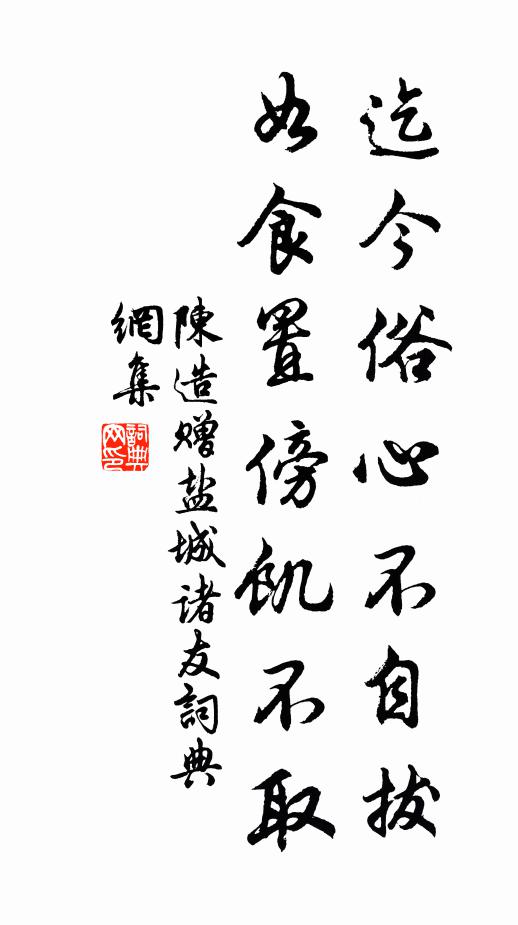 迄今俗心不自拔
如食置傍飢不取
陳造赠盐城诸友詞典
網集
詞典网印